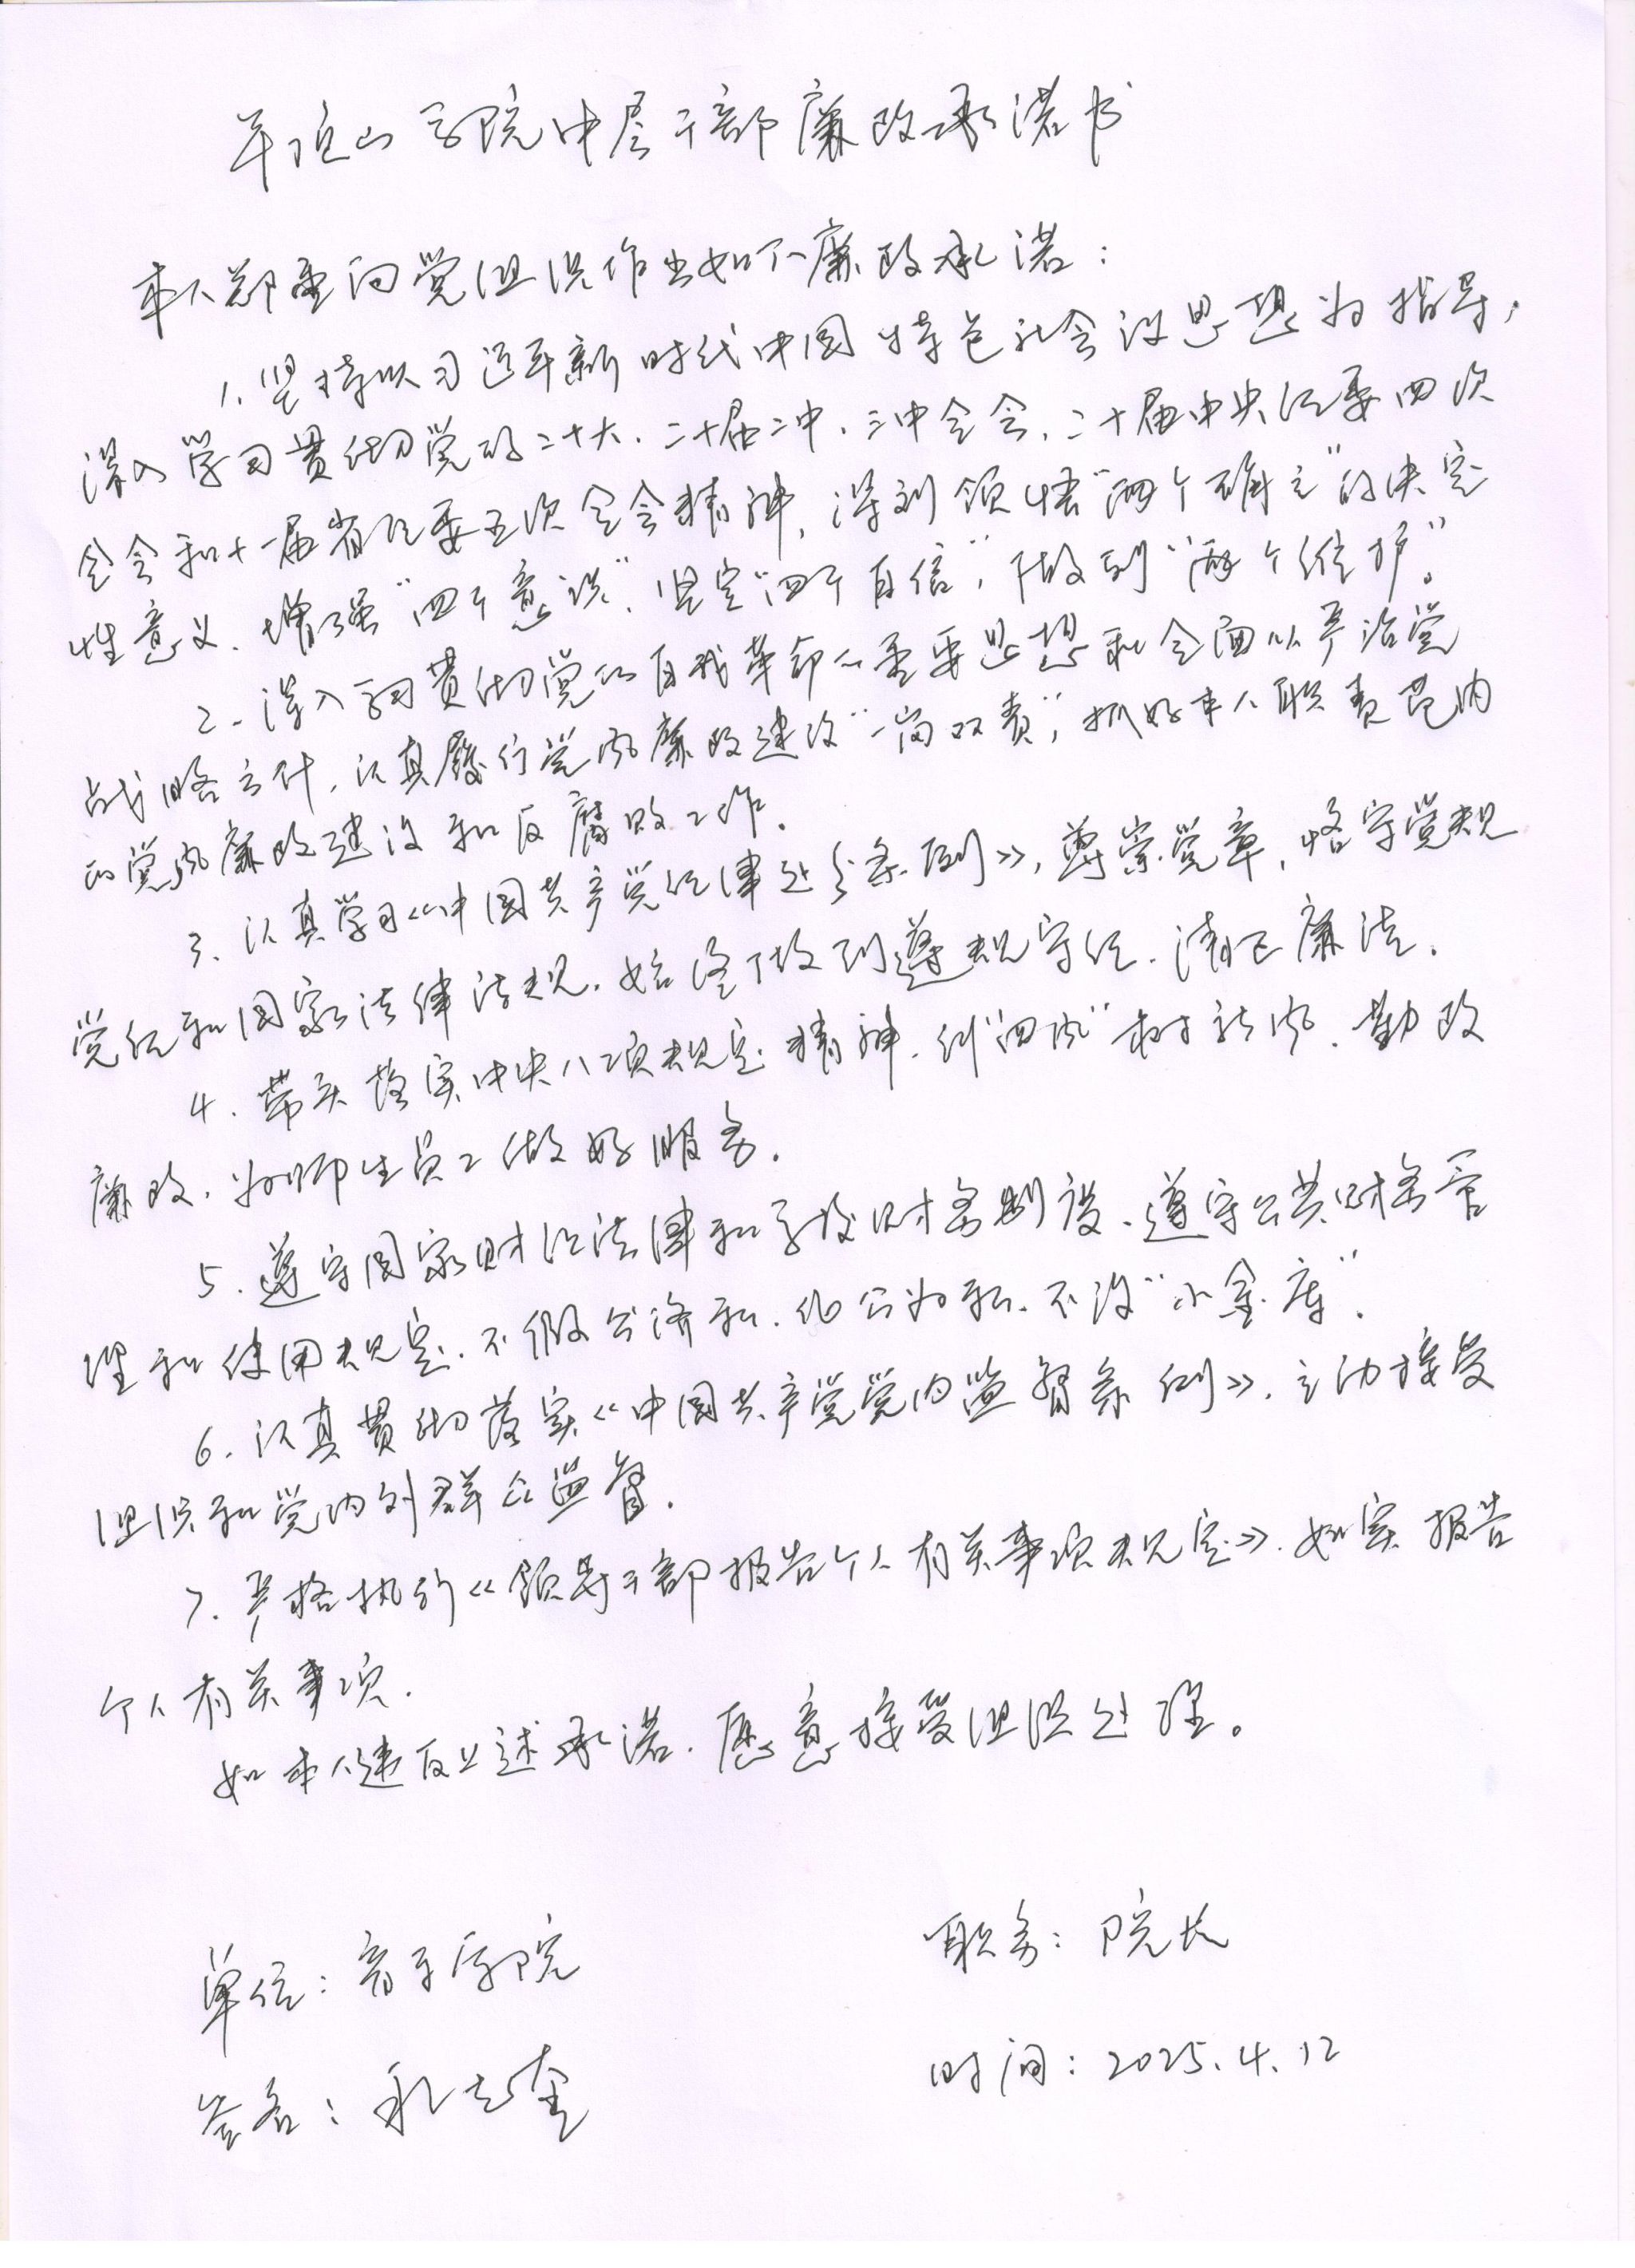 平顶山学院中层干部廉政承诺书
本人郑重向党组织作出如下廉政承诺：
1、坚持以习近平新时代中国特色社会主义思想为指导，
深入学习贯彻党的二十大、二十届二中、三中全会、二十届中央纪委四次
全会和十一届省纪委五次全会精神，深刻领悟“两个确立”的决定
性意义、增强“四个意识”、坚定“四个自信”，做到“两个维护”。
2、深入学习贯彻党的自我革命的重要思想和全面从严治党
战略方针，认真履行党风廉政建设“一岗双责”，抓好本人职责范围内
的党风廉政建设和反腐败工作。
3、认真学习《中国共产党纪律处分条例》，尊崇党章，恪守党规
党纪和国家法律法规，始终做到遵规守纪、清正廉洁。
4、带头落实中央八项规定精神，纠“四风”树新风，勤政
廉政，为师生员工做好服务。
5、遵守国家财经法律和学校财务制度、遵守公共财务管
理和使用规定，不假公济私、化公为私、不设“小金库”。
6、认真贯彻落实《中国共产党党内监督条例》，主动接受
组织和党内外群众监督。
7、严格执行《领导干部报告个人有关事项规定》，如实报告
个人有关事项。
如本人违反上述承诺，愿意接受组织处理。
单位：音乐学院 职务：院长
签名： 时间：2025.4.12